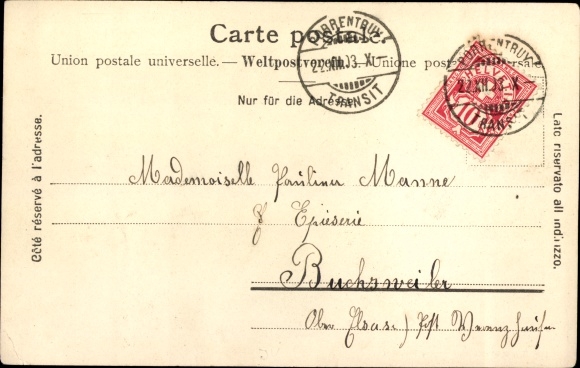 Carte postale.
Union postale universelle. — Weltpostverein. — Unione postale universale
Nur für die Adresse.
PORRENTRUY
22.XII.03-X
TRANSIT
PORRENTRUY
22.XII.03-X
TRANSIT
HELVETIA
10
Côté réservé à l'adresse.
Lato riservato all' indirizzo.
Mademoiselle Pauline Manne
Epicerie
Buchsweiler
Ober Elsass